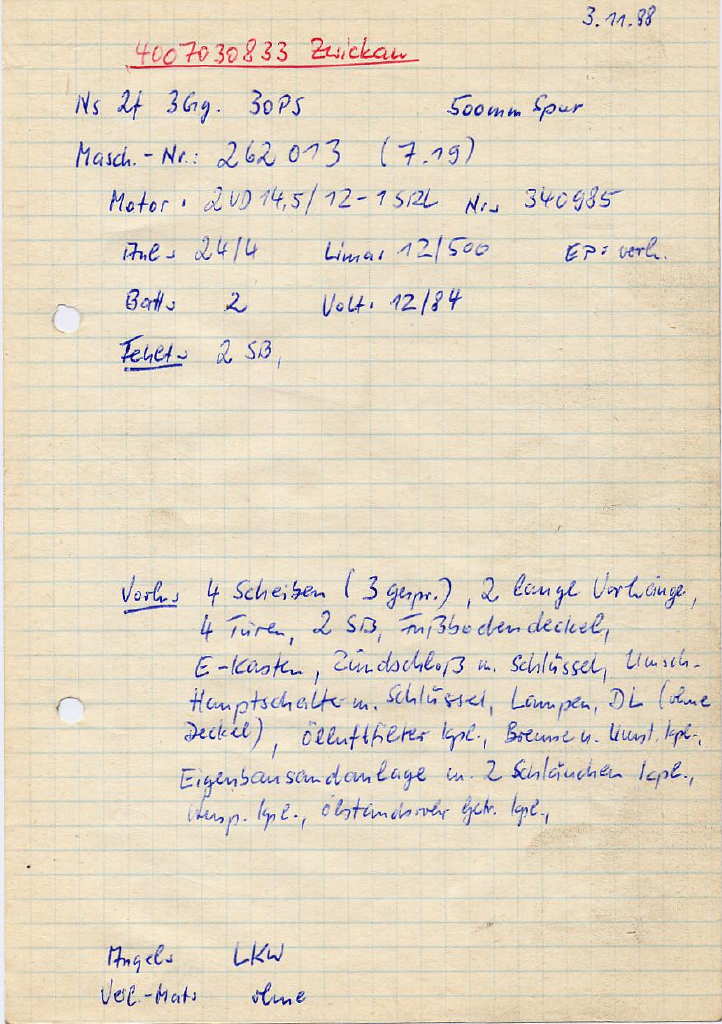 3.11.88
4007030833 Zwickau
Ns 2f 3Gg. 30PS 500mm Spur
Masch.-Nr.: 262 013 (7.19)
Motor: 2VD 14,5/12-1 SRL Nr.: 340985
Anl.: 24/4 Lima: 12/500 EP: vorh.
Batt.: 2 Volt: 12/84
Fehlt: 2 SB,
Vorh.: 4 Scheiben (3 gespr.), 2 lange Vorhänge,
4 Türen, 2 SB, Fußbodendeckel,
E-Kasten, Zündschloß m. Schlüssel, Umsch-
Hauptschalter m. Schlüssel, Lampen, DL (ohne
Deckel), Ölluftfilter kpl., Bremse u. kpl.,
Eigenbausandanlage m. 2 Schläuchen kpl.,
kpl., Ölstandsrohr Getr. kpl.,
Angel.: LKW
Verl.-Mat.: ohne